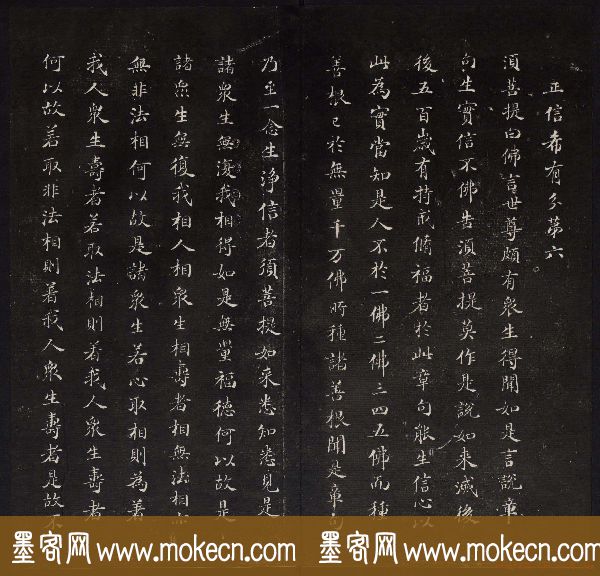 正信希有分第六
須菩提白佛言世尊頗有衆生得聞如是言說章
句生實信不佛告須菩提莫作是說如來滅後
後五百歲有持戒脩福者於此章句能生信心以
此為實當知是人不於一佛二佛三四五佛而種
善根已於無量千万佛所種諸善根聞是章句
乃至一念生淨信者須菩提如來悉知悉見是
諸衆生無復我相得如是無量福德何以故是
諸衆生無復我相人相衆生相壽者相無法相
無非法相何以故是諸衆生若心取相則為著
我人衆生壽者若取法相則著我人衆生壽者
何以故若取非法相則著我人衆生壽者是故不
墨客网 www.mokecn.com 墨客网 www.mokecn.com